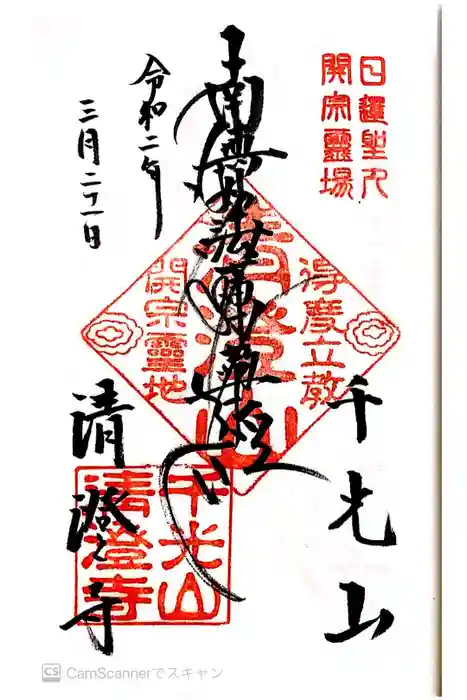 日蓮聖人
開宗靈場
千光山
南無妙法蓮華經
令和二年
三月二十一日
清澄寺
得度立教
清澄山
開宗靈地
千光山
清澄寺
CS CamScannerでスキャン